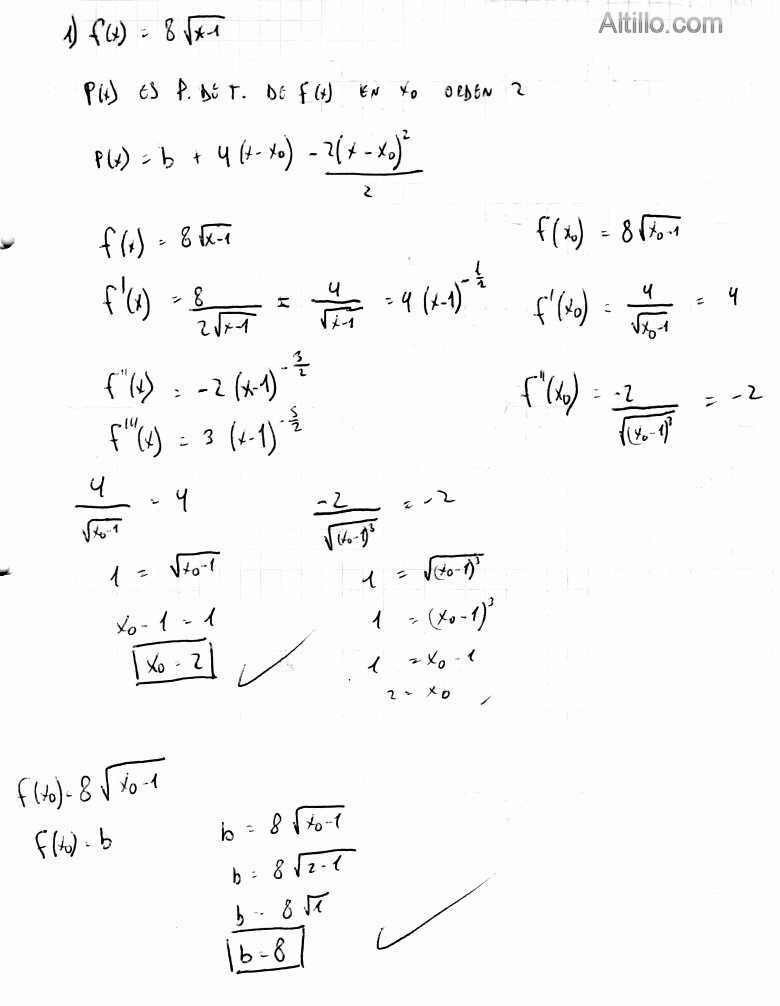 Altillo.com
1) f(x) = 8√(x-1)
P(x) ES P. DE T. DE f(x) EN x₀ ORDEN 2
P(x) = b + 4(x-x₀) - 2(x-x₀)²/2
f(x) = 8√(x-1)
f(x₀) = 8√(x₀-1)
f'(x) = 8/(2√(x-1)) = 4/√(x-1) = 4(x-1)^(-1/2)
f'(x₀) = 4/√(x₀-1) = 4
f''(x) = -2(x-1)^(-3/2)
f''(x₀) = -2/√((x₀-1)³) = -2
f'''(x) = 3(x-1)^(-5/2)
4/√(x₀-1) = 4
1 = √(x₀-1)
x₀-1 = 1
x₀ = 2
-2/√((x₀-1)³) = -2
1 = √((x₀-1)³)
1 = (x₀-1)³
1 = x₀-1
2 = x₀
f(x₀) = 8√(x₀-1)
f(x₀) = b
b = 8√(x₀-1)
b = 8√(2-1)
b = 8√1
b = 8